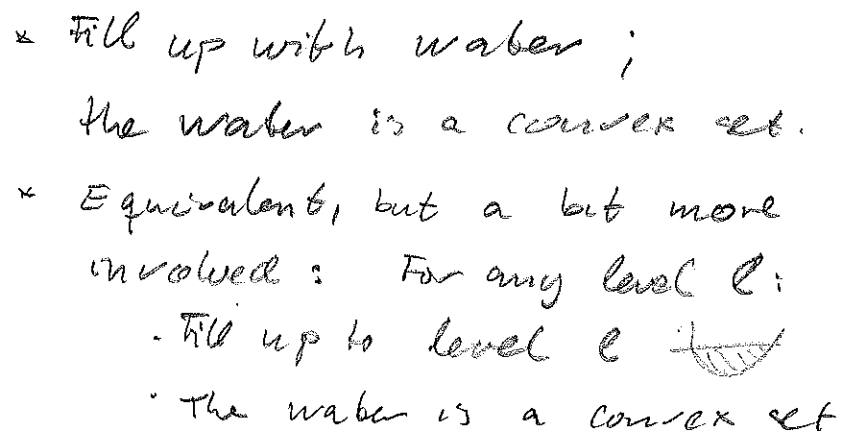 * Fill up with water ;
the water is a convex set.
* Equivalent, but a bit more
involved : For any level l :
· Fill up to level l
· The water is a convex set